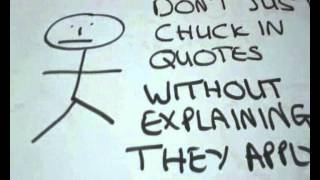 DON'T JUS
CHUCK IN
QUOTES
WITHOUT
EXPLAINING
THEY APPL